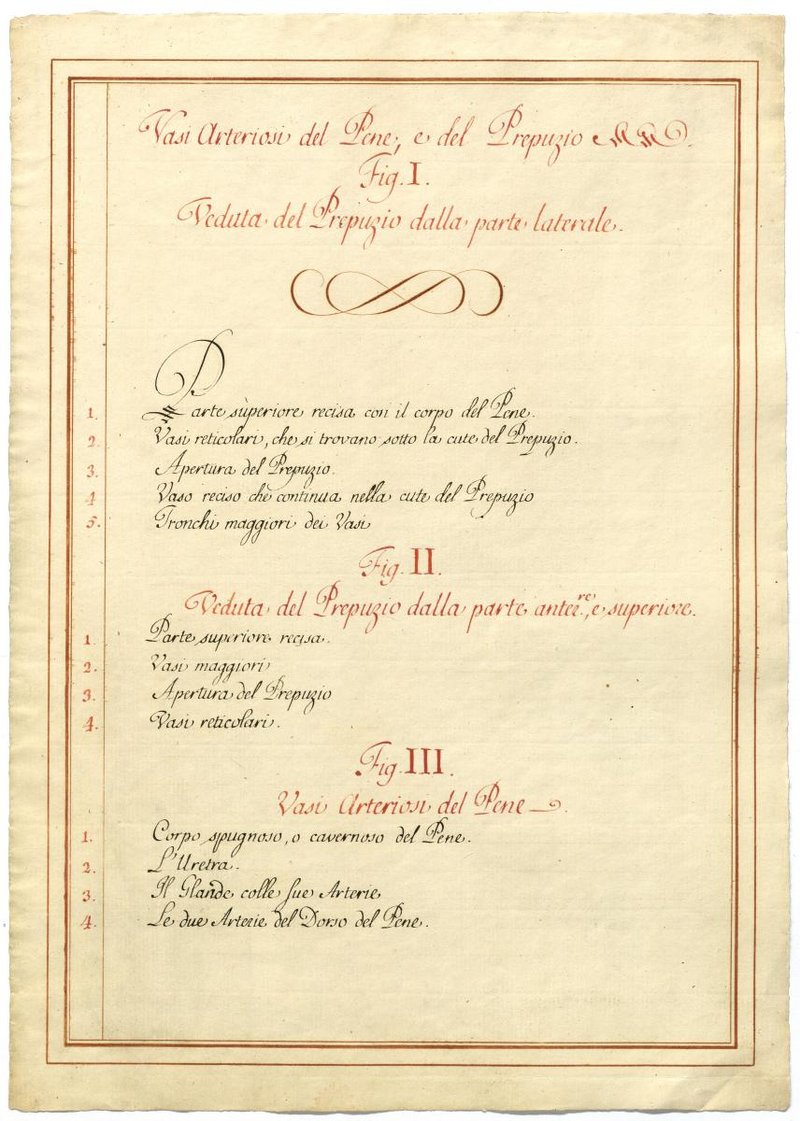 Vasi Arteriosi del Pene, e del Prepuzio
Fig. I.
Veduta del Prepuzio dalla parte laterale.
1. Parte sùperiore recisa con il corpo del Pene.
2. Vasi reticolari, che si trovano sotto la cute del Prepuzio.
3. Apertura del Prepuzio.
4 Vaso reciso che continua nella cute del Prepuzio
5. Tronchi maggiori dei Vasi
Fig. II.
Veduta del Prepuzio dalla parte anter.re, e superiore.
1. Parte superiore recisa.
2. Vasi maggiori
3. Apertura del Prepuzio
4. Vasi reticolari.
Fig. III.
Vasi Arteriosi del Pene
1. Corpo spugnoso, o cavernoso del Pene.
2. L'Uretra.
3. Il Glande colle sue Arterie
4. Le due Arterie del Dorso del Pene.